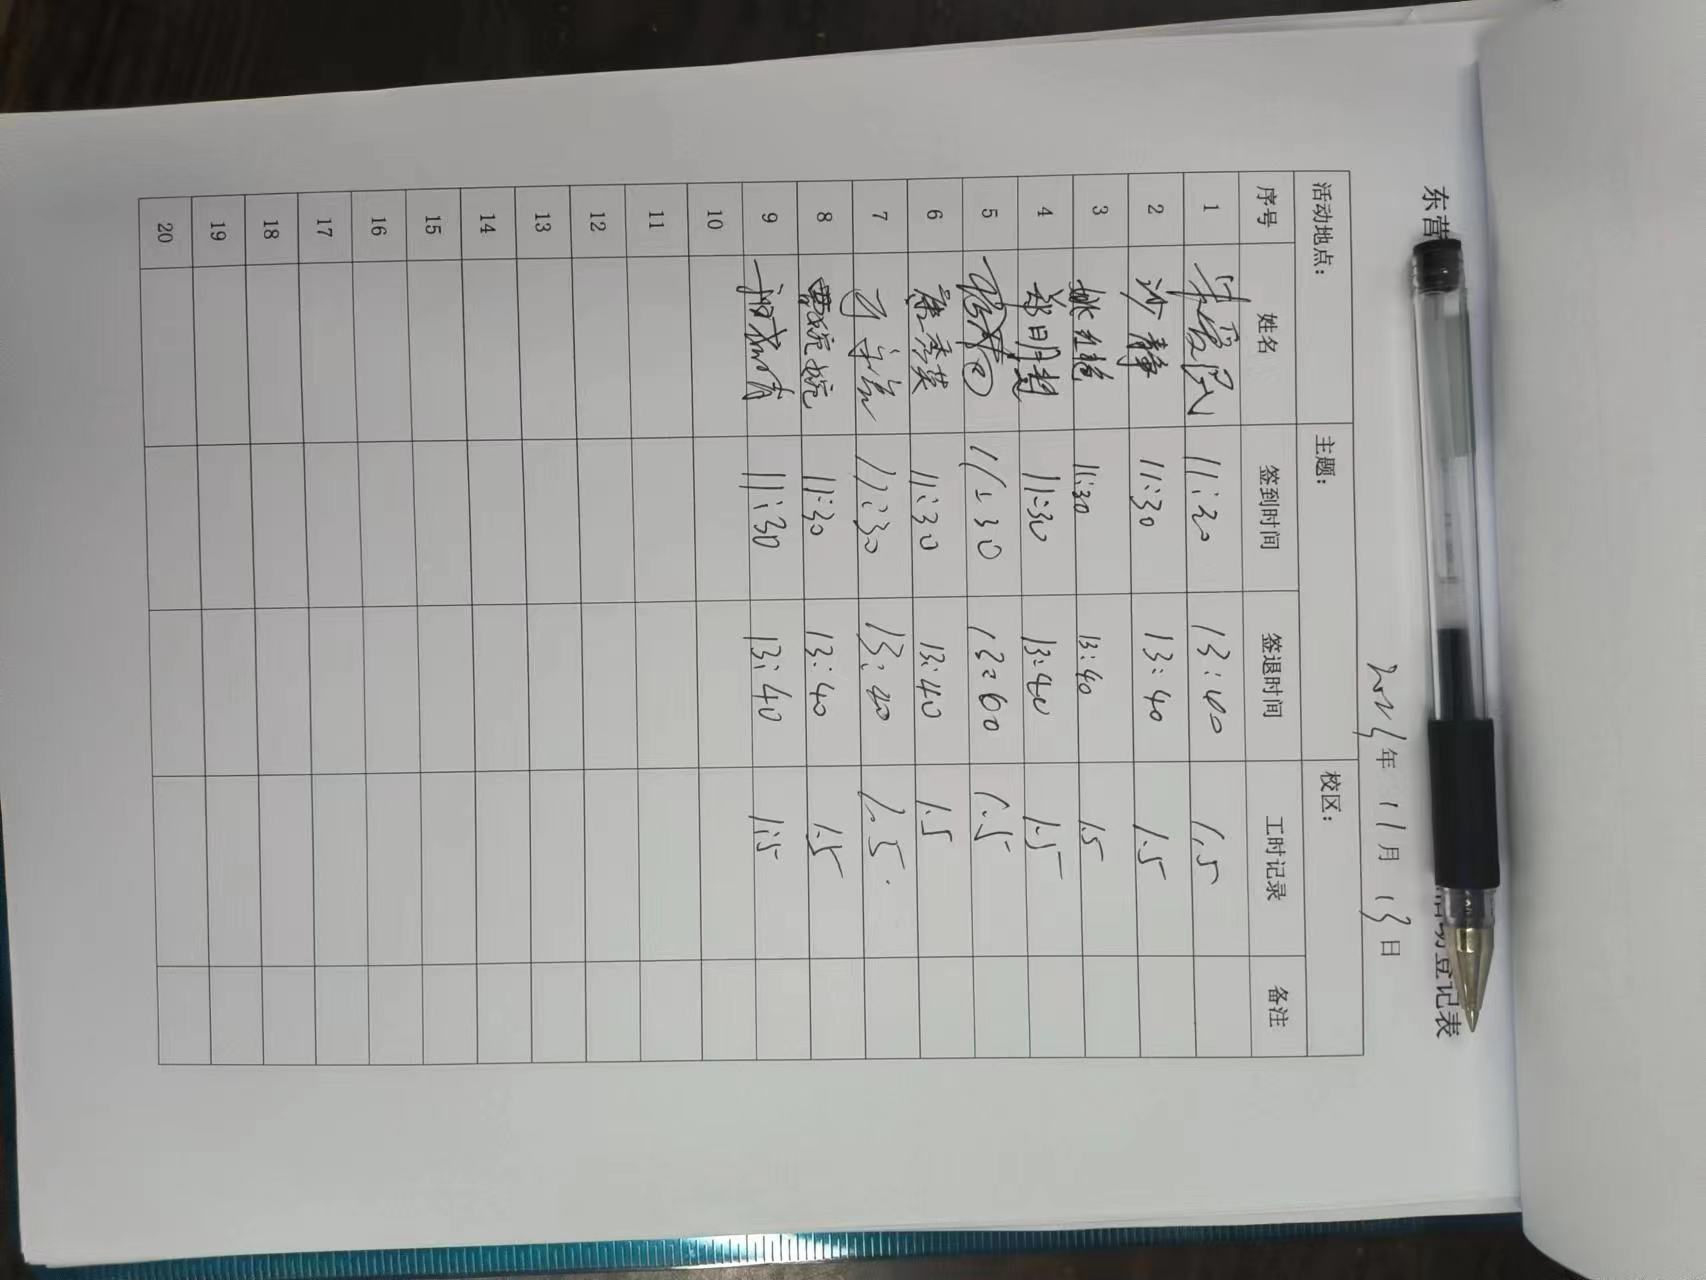 东营
活动登记表
年 11月 13日
活动地点： 主题： 校区：
序号 姓名 签到时间 签退时间 工时记录 备注
1 11:30 13:40 1.5
2 沙静 11:30 13:40 1.5
3 姚红艳 11:30 13:40 1.5
4 郑明慧 11:30 13:40 1.5
5 11:30 1.5
6 秀英 11:30 13:40 1.5
7 11:30 13:40 1.5
8 贾婉婉 11:30 13:40 1.5
9 11:30 13:40 1.5
10
11
12
13
14
15
16
17
18
19
20